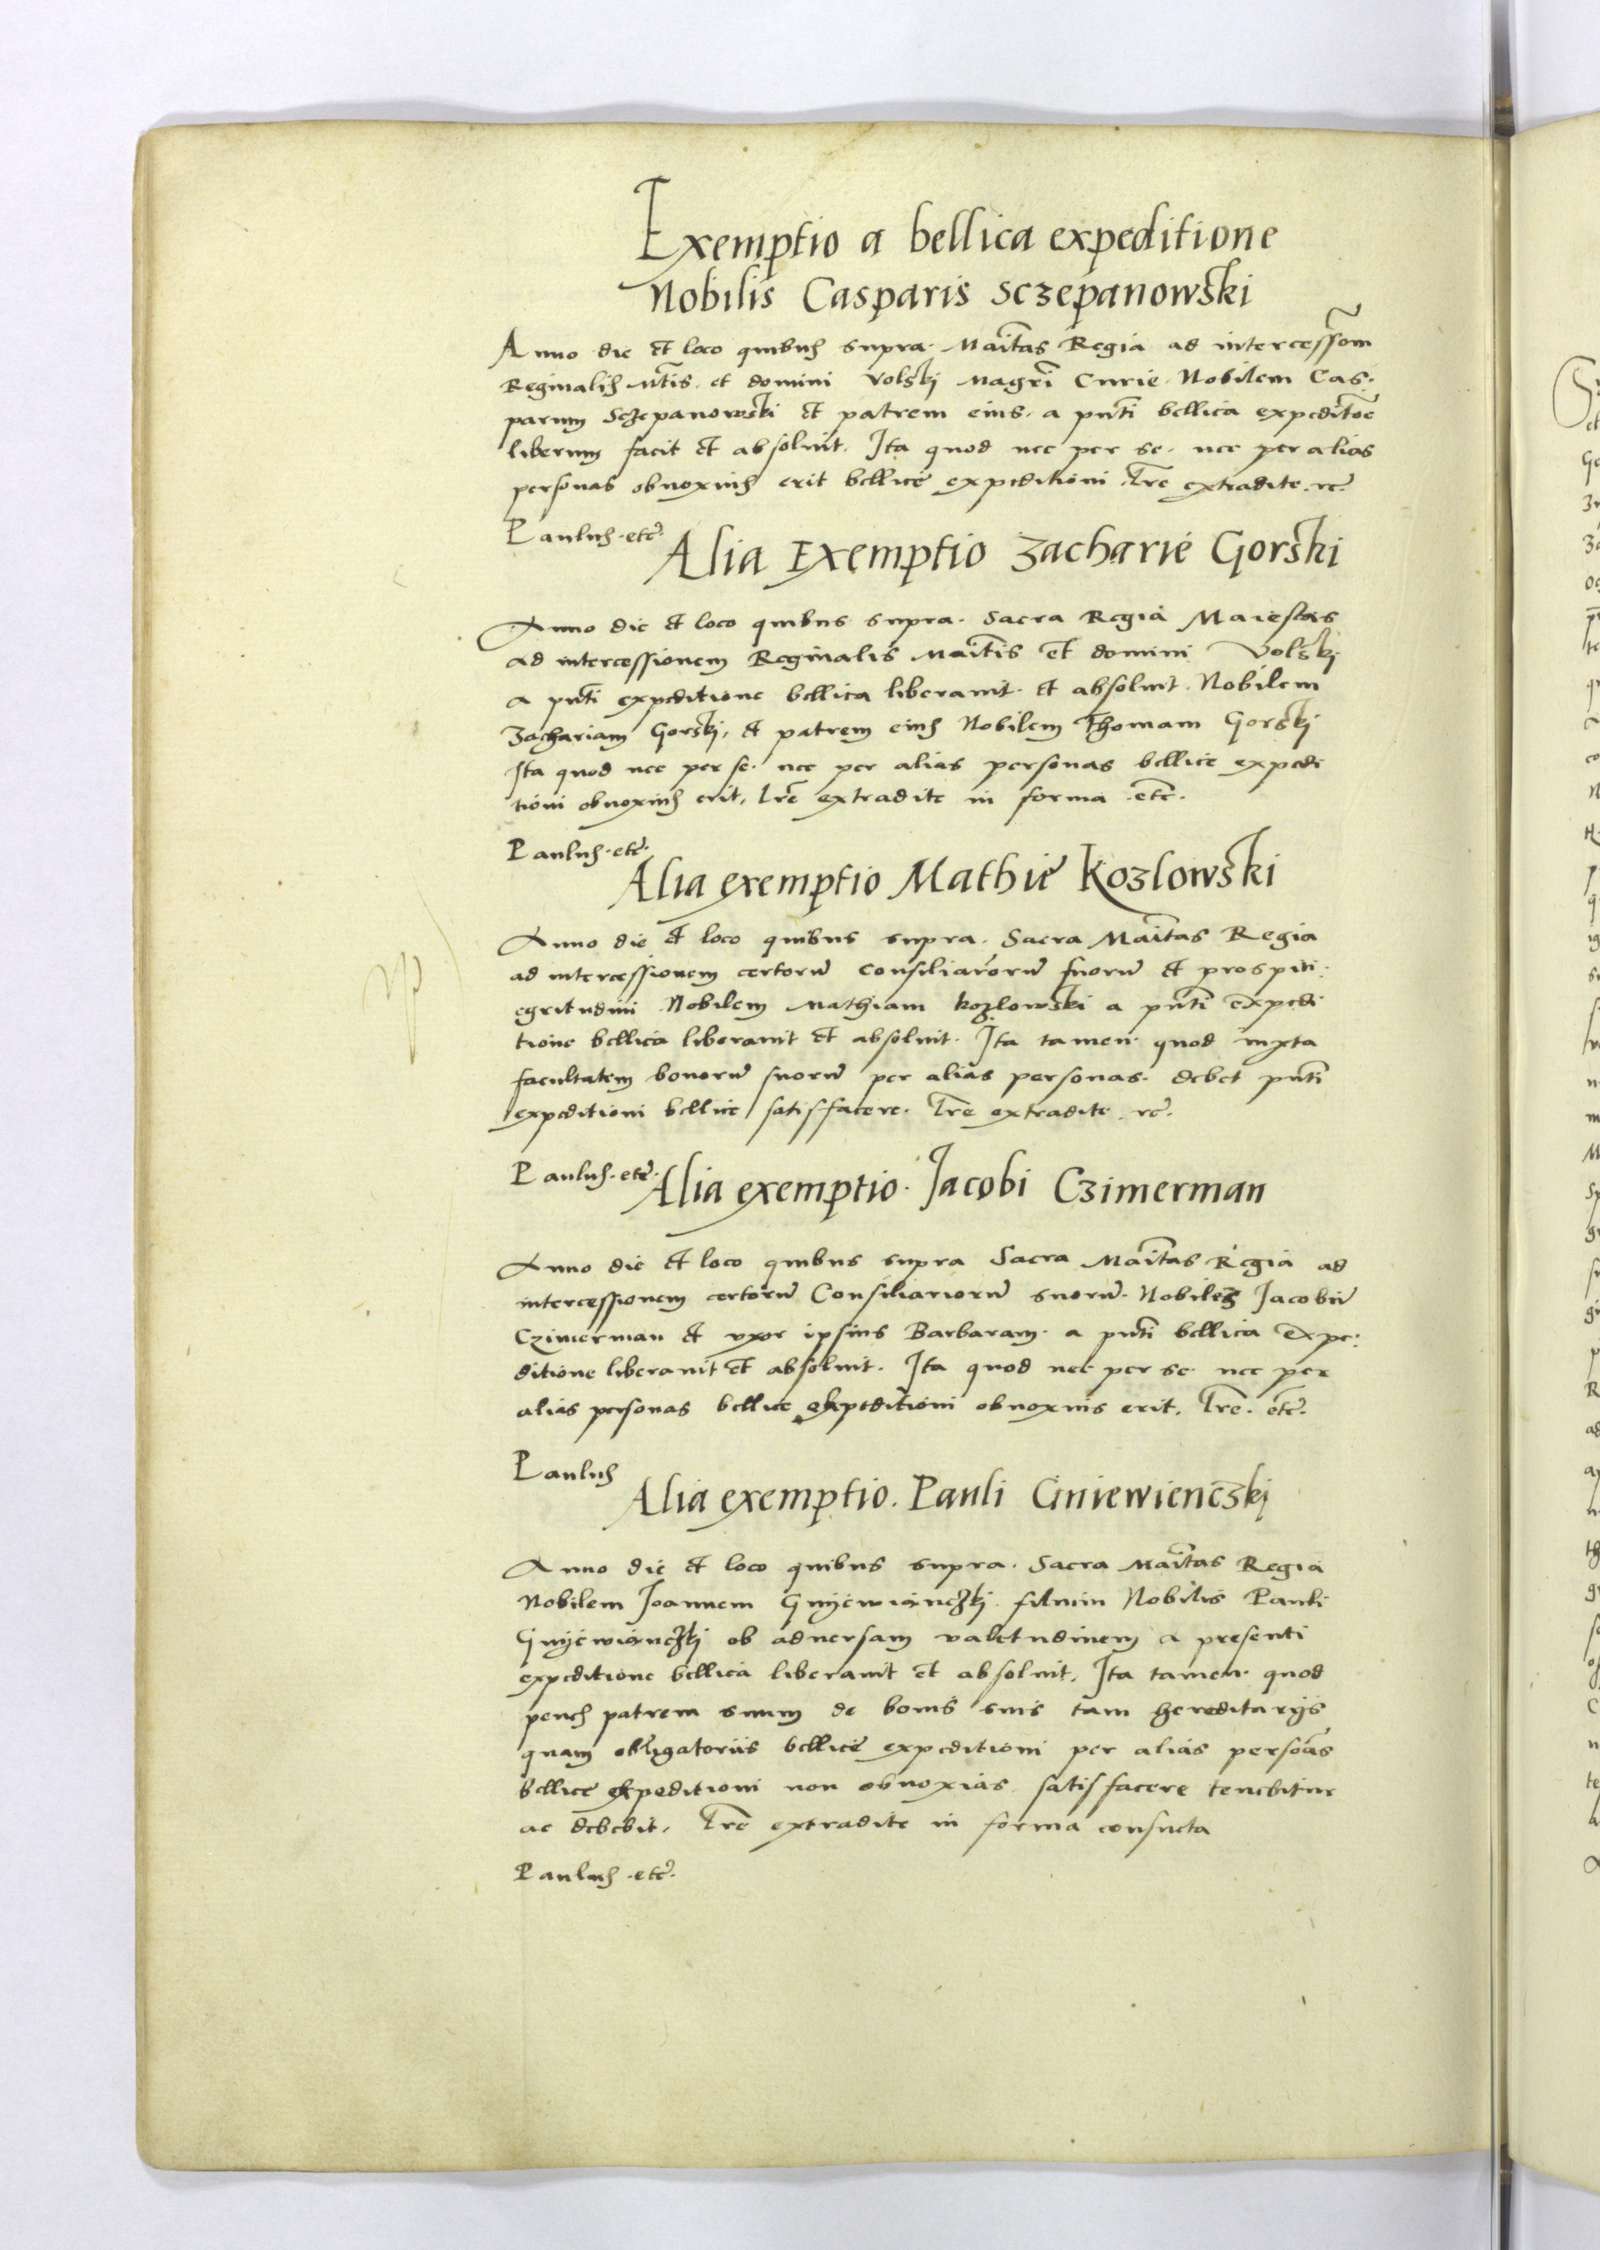 Exemptio a bellica expeditione
Nobilis Casparis Sczepanowski
Anno die et loco quibus supra. Maitas Regia ad intercessiom
Reginalis Mtis. et domini Volski Magri Curie. Nobilem Cas.
parum Sczepanowski et patrem eius. a pnti bellica expeditoe
liberum facit et absoluit. Ita quod nec per se. nec per alias
personas obnoxius erit bellice expeditioni. Lre extradite. rc.
Paulus. etc.
Alia Exemptio Zacharie Gorski
Anno die et loco quibus supra. Sacra Regia Maiestas
ad intercessionem Reginalis Maitis et domini Volski
a pnti expeditione bellica liberauit. et absoluit. Nobilem
Zachariam Gorski, et patrem eius Nobilem Thomam Gorski
Ita quod nec per se. nec per alias personas bellice expedi
tioni obnoxius erit, Lre extradite in forma. etc.
Paulus. etc.
Alia exemptio Mathie Kozlowski
Anno die et loco quibus supra. Sacra Maitas Regia
ad intercessionem certoru consiliarioru suoru et prospiti.
egritudini Nobilem Mathiam Kozlowski a pnti expedi
tione bellica liberauit et absoluit. Ita tamen quod iuxta
facultatem bonoru suoru per alias personas. debet pnti
expeditioni bellice satisfacere. Lre extradite. rc.
Paulus. etc.
Alia exemptio. Jacobi Czimerman
Anno die et loco quibus supra Sacra Maitas Regia ad
intercessionem certoru Consiliarioru suoru. Nobiles Jacobu
Czimerman et vxor ipsius Barbaram. a pnti bellica expe.
ditione liberauit et absoluit. Ita quod nec per se nec per
alias personas bellice expeditioni obnoxius erit. Lre. etc.
Paulus
Alia exemptio. Pauli Gniewienczki
Anno die et loco quibus supra. Sacra Maitas Regia
Nobilem Joannem Gnyewianczki. filium Nobilis Pauli
Gnyewianczki ob aduersam valetudinem a presenti
expeditione bellica liberauit et absoluit, Ita tamen quod
penes patrem suum de bonis suis tam hereditarijs
quam obligatoriis bellice expeditioni per alias persoas
bellice expeditioni non obnoxias satisfacere tenebitur
ac debebit, Lre extradite in forma consueta
Paulus. etc.